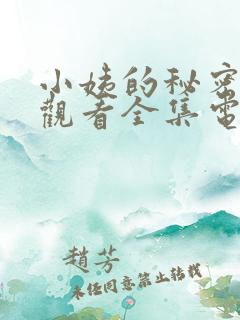 小姨的秘密
觀看全集電
趙芳
未经同意禁止转载